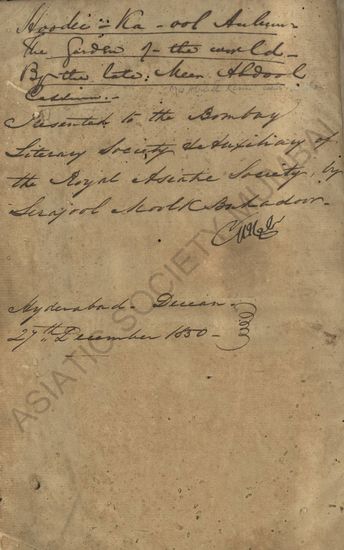 Hoodee-Ka-ool Aulum-
the Garden of the world-
By the late: Meer Abdool
Cassim.-
Presented to the Bombay
Literary Society & Auxiliary of
the Royal Asiatic Society, by
Serajool Moolk Bahadoor-
Hyderabad- Deccan-
27th December 1850-
ASIATIC SOCIETY MUMBAI